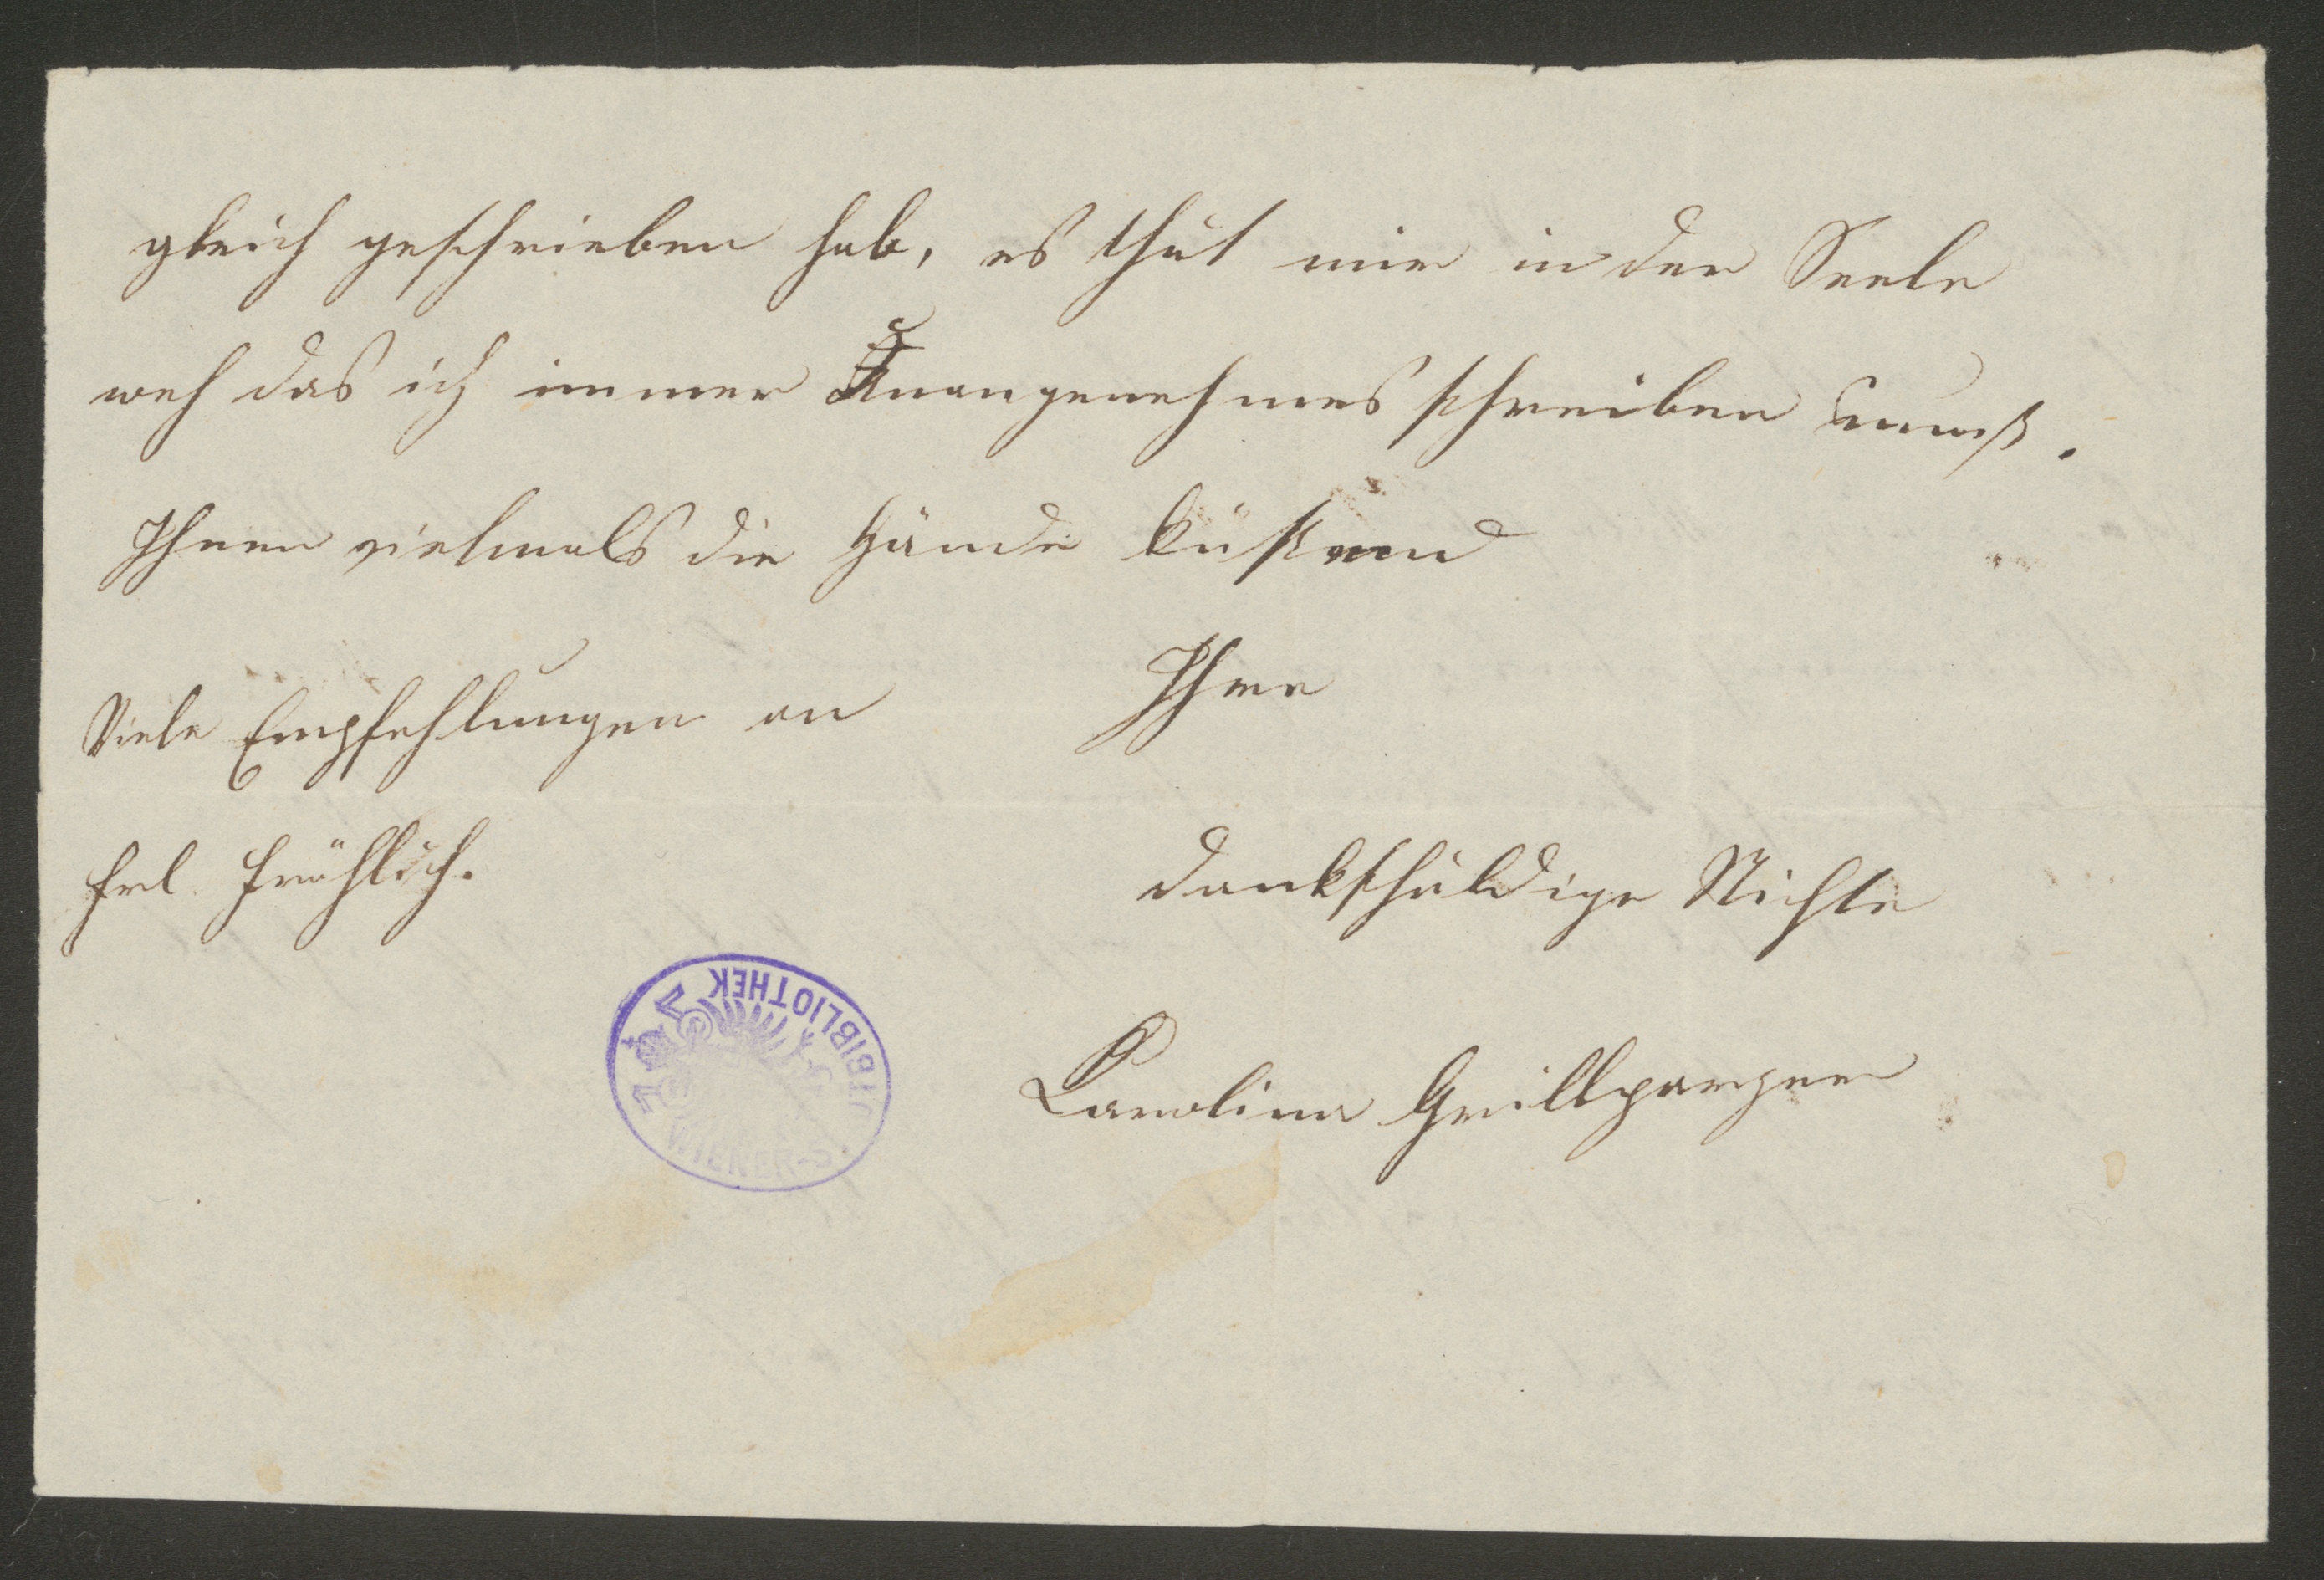 gleich geschrieben hab, es thut mir in der Seele
weh das ich immer Unangenehmes schreiben muß.
Ihnen vielmals die Hände küßend
Ihre
Viele Empfehlungen an
Frl. Fröhlich.
dankschuldige Nichte
Karolina Grillparzer
BIBLIOTHEK
WIENER-S